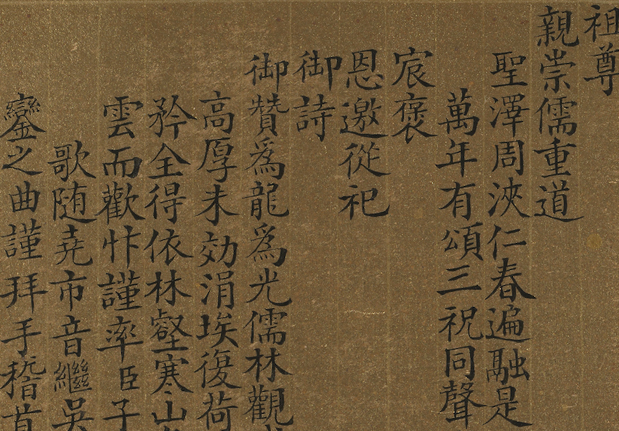 祖尊
親崇儒重道
聖澤周浹仁春遍融是
萬年有頌三祝同聲
宸褒
恩邀從祀
御詩
御贊為龍為光儒林觀
高厚未効涓埃復荷
矜全得依林壑寒山
雲而歡忭謹率臣子
歌随堯市音繼吳
鑾之曲謹拜手稽首